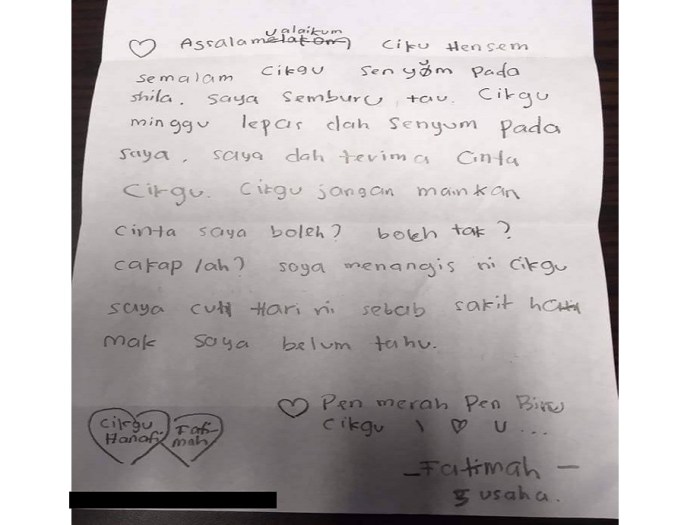 Assalamualaikum Ciku Hensem
semalam cikgu senyum pada
shila. saya semburu tau. Cikgu
minggu lepas dah senyum pada
saya. saya dah terima cinta
cikgu. Cikgu jangan mainkan
cinta saya boleh? boleh tak?
cakap lah? saya menangis ni cikgu
saya cuti Hari ni sebab sakit hati
mak saya belum tahu.
Pen merah Pen Biru
cikgu I ♡ U...
Cikgu Hanafi
Fatimah
-Fatimah-
5 usaha.